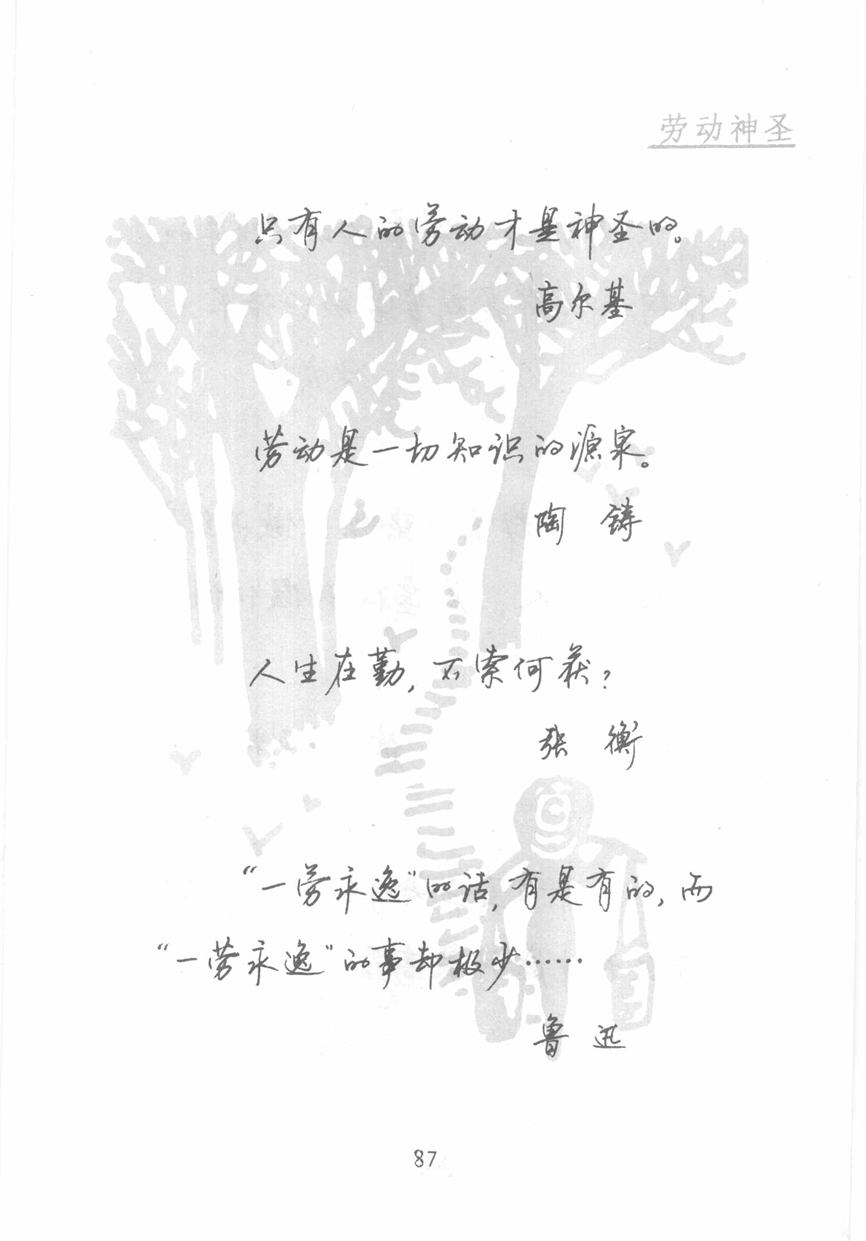 劳动神圣
只有人的劳动才是神圣的。
高尔基
劳动是一切知识的源泉。
陶 铸
人生在勤,不索何获?
张 衡
“一劳永逸”的话,有是有的,而
“一劳永逸”的事却极少……
鲁 迅
87